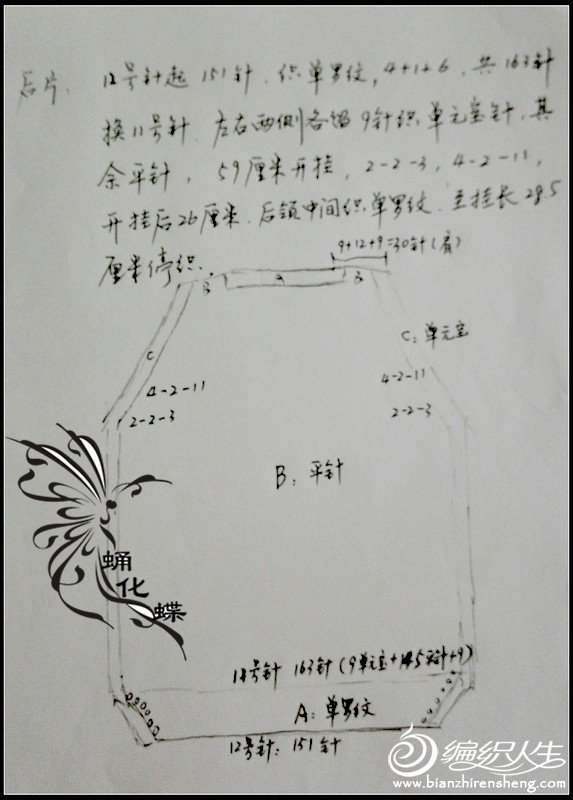 后片. 12号针起151针, 织单罗纹, 4+1+6, 共163针
换11号针. 左右两侧各留9针织单元宝针, 其
余平针, 59厘米开挂, 2-2-3, 4-2-11,
开挂后26厘米. 后领中间织单罗纹. 至挂长28.5
厘米停织.
9+12+9=30针(肩)
B A B
C
C: 单元宝
4-2-11 4-2-11
2-2-3 2-2-3
B: 平针
蛹
化
蝶
163针(9单元宝+145平针+9)
A: 单罗纹
12号针: 151针
编织人生
www.bianzhirensheng.com